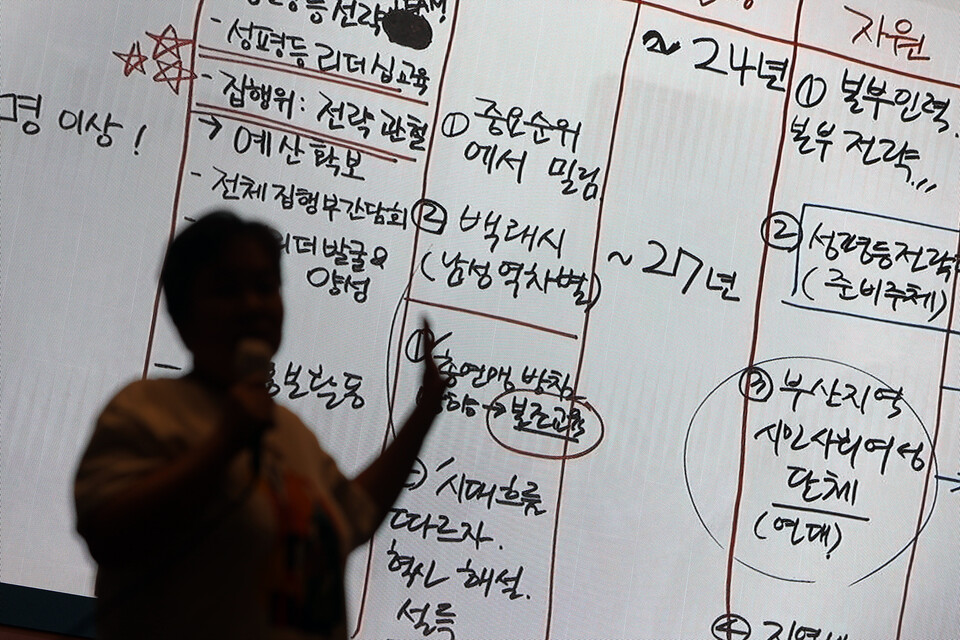 명 이상!
성평등 전략 TEAM
- 성평등 리더십교육
- 집행위: 전략 관철
→ 예산 확보
- 전체 집행부간담회
리더 발굴 &
양성
홍보활동
① 중요순위
에서 밀림
② 백래시
(남성 역차별)
①
총연맹 방침
→ 보조교육
시대흐름
따르자.
혁신 해설.
설득
~ 24년
~ 27년
자원
① 본부인력.
본부 전략...
② 성평등전략
(준비주체)
③ 부산지역
시민사회여성
단체
(연대)
④